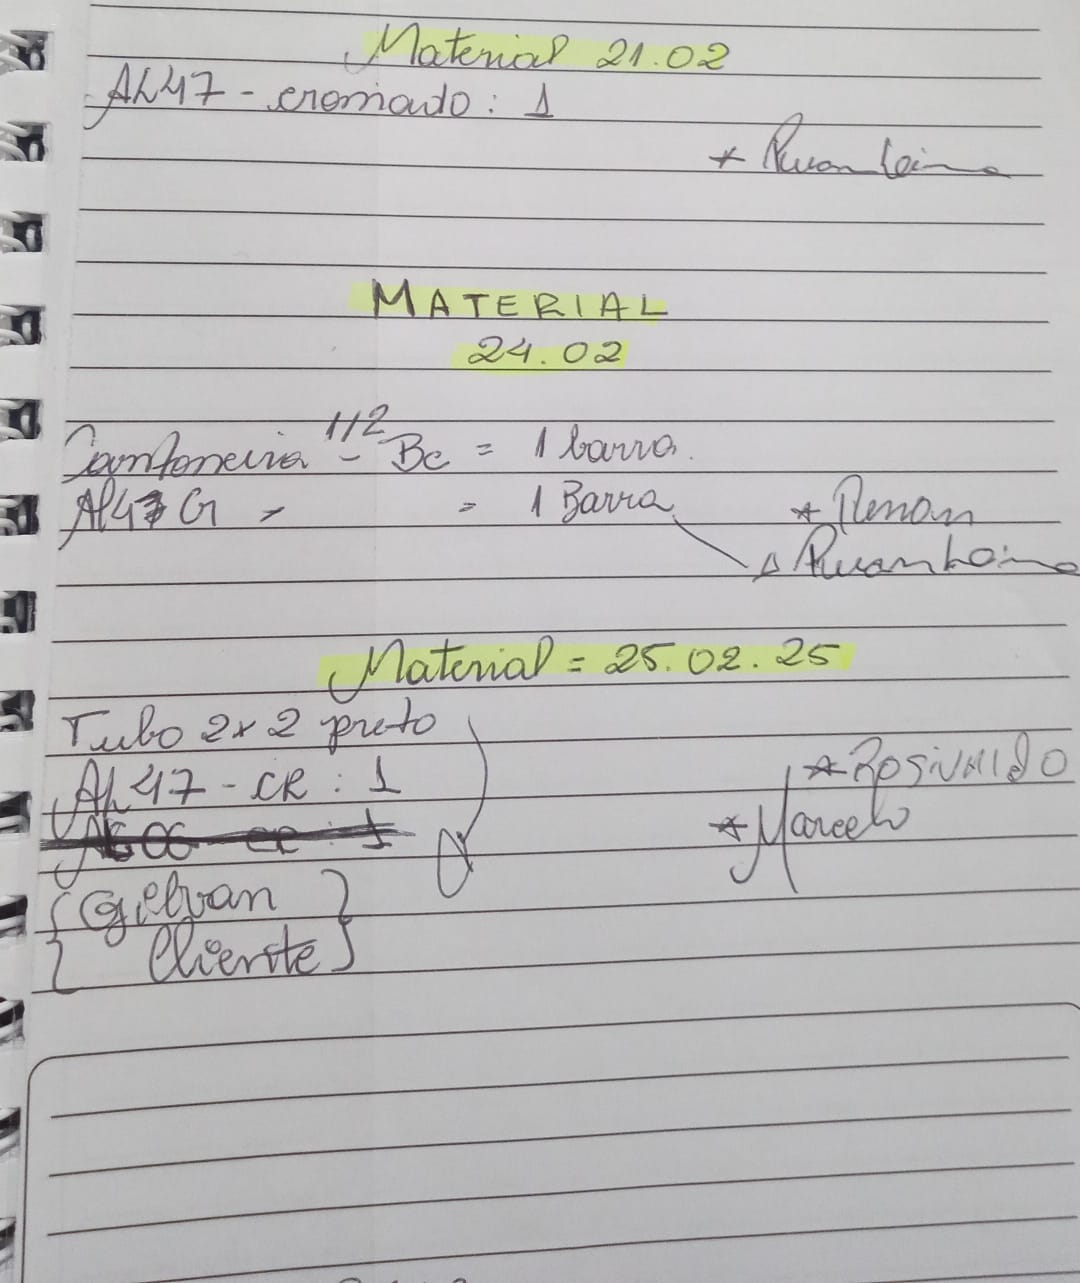 Material 21.02
AL47 - cromado: 1
* Ruan
MATERIAL
24.02
Cantoneira 1/2 - Bc = 1 barra.
AL47 G - = 1 Barra
* Renan
* Ruan
Material = 25.02.25
Tubo 2x2 preto
* ROSIVALDO
AL47 - CR : 1
* Marcelo
CR : 1
{Gilvan
Cliente}